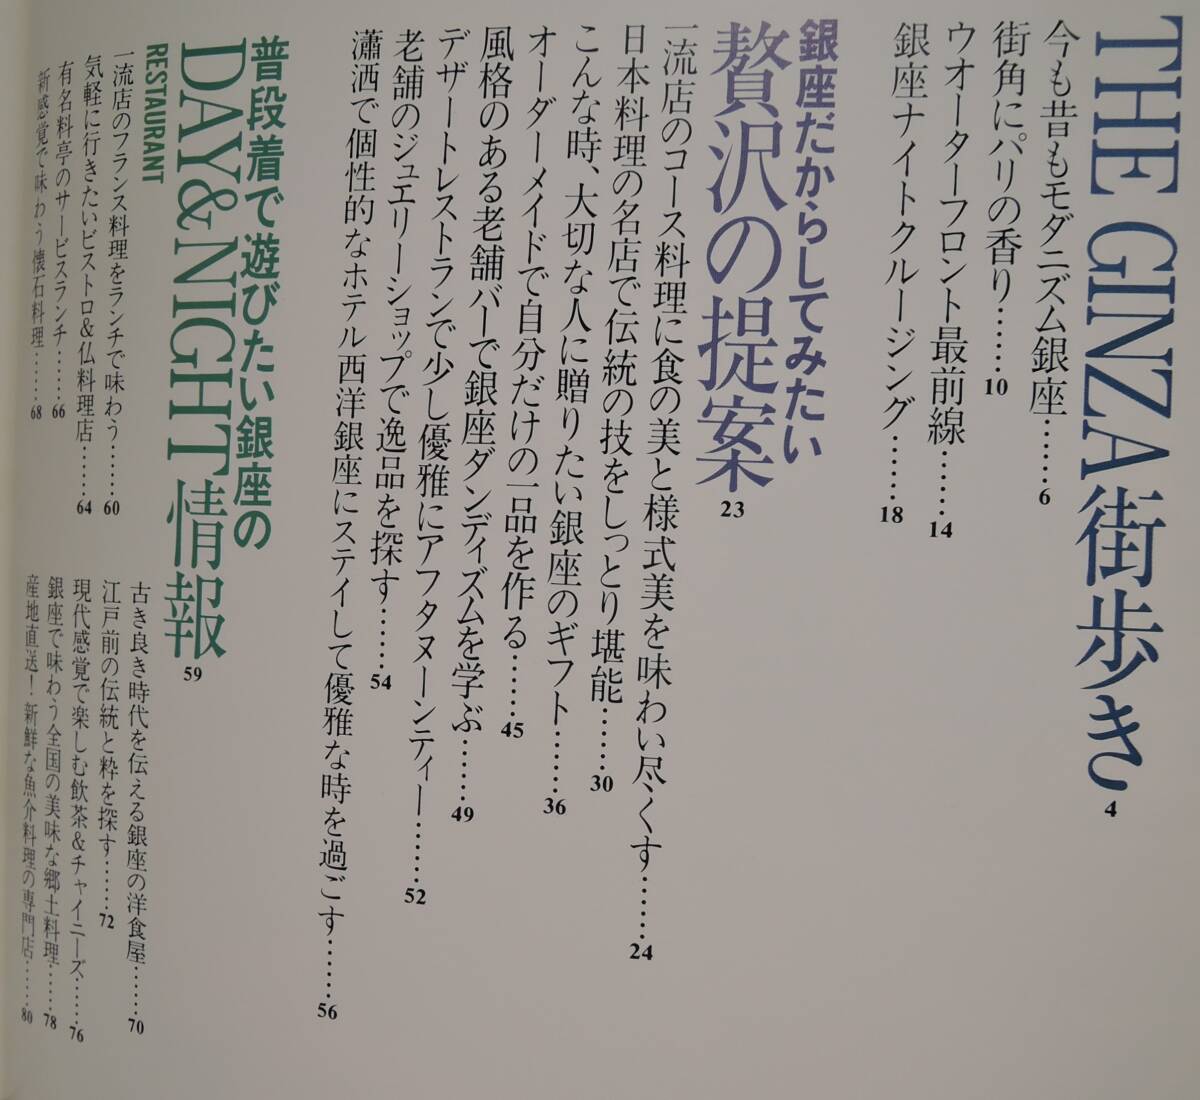 THE GINZA街歩き 4
今も昔もモダニズム銀座……6
街角にパリの香り……10
ウオーターフロント最前線……14
銀座ナイトクルージング……18
銀座だからしてみたい
贅沢の提案 23
一流店のコース料理に食の美と様式美を味わい尽くす……24
日本料理の名店で伝統の技をしっとり堪能……30
こんな時、大切な人に贈りたい銀座のギフト……36
オーダーメイドで自分だけの一品を作る……45
風格のある老舗バーで銀座ダンディズムを学ぶ……49
デザートレストランで少し優雅にアフタヌーンティー……52
老舗のジュエリーショップで逸品を探す……54
瀟洒で個性的なホテル西洋銀座にステイして優雅な時を過ごす……56
普段着で遊びたい銀座の
DAY&NIGHT情報 59
RESTAURANT
一流店のフランス料理をランチで味わう……60
気軽に行きたいビストロ&仏料理店……64
有名料亭のサービスランチ……66
新感覚で味わう懐石料理……68
古き良き時代を伝える銀座の洋食屋……70
江戸前の伝統と粋を探す……72
現代感覚で楽しむ飲茶&チャイニーズ……76
銀座で味わう全国の美味な郷土料理……78
産地直送！新鮮な魚介料理の専門店……80